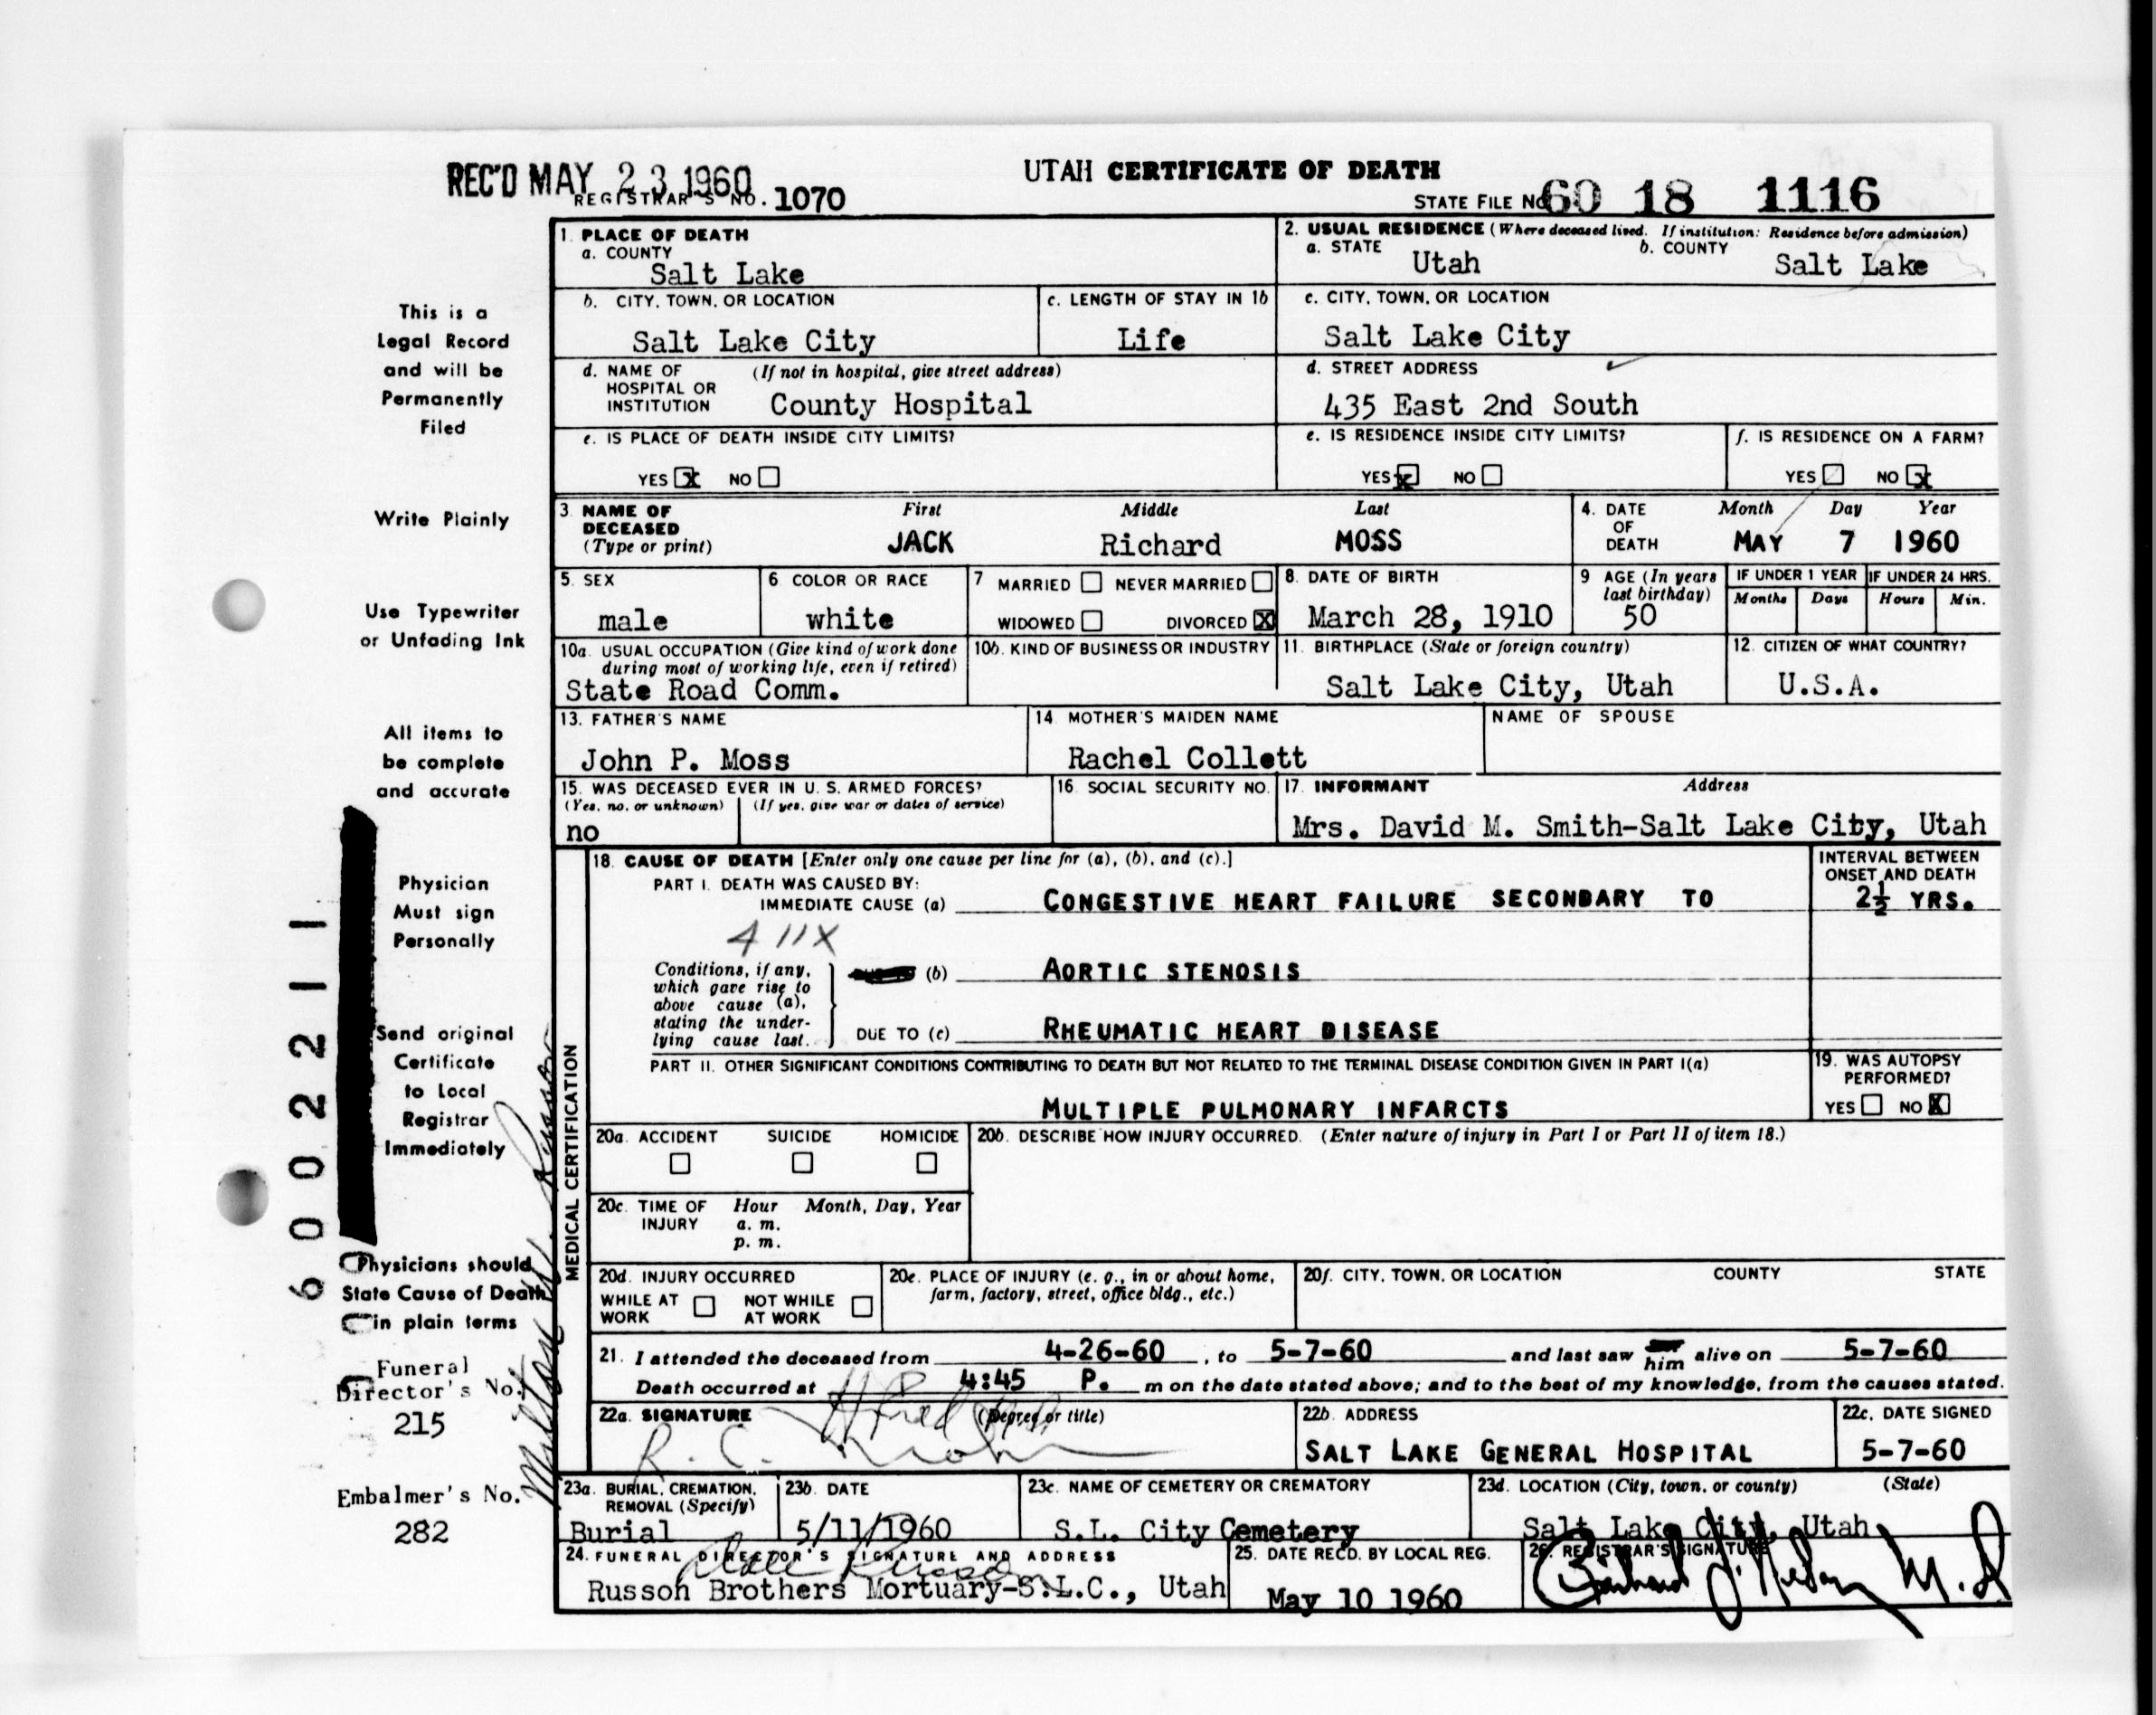 REC'D MAY 23 1960
REGISTRAR'S NO. 1070
UTAH CERTIFICATE OF DEATH
STATE FILE NO. 60 18 1116
This is a
Legal Record
and will be
Permanently
Filed
Write Plainly
Use Typewriter
or Unfading Ink
All items to
be complete
and accurate
Physician
Must sign
Personally
Send original
Certificate
to Local
Registrar
Immediately
Physicians should
State Cause of Death
in plain terms
Funeral
Director's No.
215
Embalmer's No.
282
6002211
1. PLACE OF DEATH
a. COUNTY
Salt Lake
2. USUAL RESIDENCE (Where deceased lived. If institution: Residence before admission)
a. STATE Utah b. COUNTY Salt Lake
b. CITY, TOWN, OR LOCATION
Salt Lake City
c. LENGTH OF STAY IN 1b
Life
c. CITY, TOWN, OR LOCATION
Salt Lake City
d. NAME OF (If not in hospital, give street address)
HOSPITAL OR
INSTITUTION County Hospital
d. STREET ADDRESS
435 East 2nd South
e. IS PLACE OF DEATH INSIDE CITY LIMITS?
YES X NO
e. IS RESIDENCE INSIDE CITY LIMITS?
YES X NO
f. IS RESIDENCE ON A FARM?
YES NO X
3. NAME OF DECEASED (Type or print)
First Middle Last
JACK Richard MOSS
4. DATE OF DEATH
Month Day Year
MAY 7 1960
5. SEX
male
6. COLOR OR RACE
white
7 MARRIED NEVER MARRIED
WIDOWED DIVORCED X
8. DATE OF BIRTH
March 28, 1910
9 AGE (In years last birthday)
50
IF UNDER 1 YEAR IF UNDER 24 HRS.
Months Days Hours Min.
10a. USUAL OCCUPATION (Give kind of work done
during most of working life, even if retired)
State Road Comm.
10b. KIND OF BUSINESS OR INDUSTRY
11. BIRTHPLACE (State or foreign country)
Salt Lake City, Utah
12. CITIZEN OF WHAT COUNTRY?
U.S.A.
13. FATHER'S NAME
John P. Moss
14. MOTHER'S MAIDEN NAME
Rachel Collett
NAME OF SPOUSE
15. WAS DECEASED EVER IN U. S. ARMED FORCES?
(Yes, no, or unknown) (If yes, give war or dates of service)
no
16. SOCIAL SECURITY NO.
17. INFORMANT Address
Mrs. David M. Smith-Salt Lake City, Utah
MEDICAL CERTIFICATION
18. CAUSE OF DEATH [Enter only one cause per line for (a), (b), and (c).]
INTERVAL BETWEEN
ONSET AND DEATH
PART I. DEATH WAS CAUSED BY:
IMMEDIATE CAUSE (a) CONGESTIVE HEART FAILURE SECONDARY TO 2½ YRS.
411X
Conditions, if any,
which gave rise to
above cause (a),
stating the under-
lying cause last.
(b) AORTIC STENOSIS
DUE TO (c) RHEUMATIC HEART DISEASE
PART II. OTHER SIGNIFICANT CONDITIONS CONTRIBUTING TO DEATH BUT NOT RELATED TO THE TERMINAL DISEASE CONDITION GIVEN IN PART I(a)
MULTIPLE PULMONARY INFARCTS
19. WAS AUTOPSY
PERFORMED?
YES NO X
20a. ACCIDENT SUICIDE HOMICIDE
20b. DESCRIBE HOW INJURY OCCURRED. (Enter nature of injury in Part I or Part II of item 18.)
20c. TIME OF INJURY Hour Month, Day, Year
a. m.
p. m.
20d. INJURY OCCURRED
WHILE AT WORK NOT WHILE AT WORK
20e. PLACE OF INJURY (e. g., in or about home,
farm, factory, street, office bldg., etc.)
20f. CITY, TOWN, OR LOCATION COUNTY STATE
21. I attended the deceased from 4-26-60, to 5-7-60 and last saw him alive on 5-7-60
Death occurred at 4:45 P. m on the date stated above; and to the best of my knowledge, from the causes stated.
22a. SIGNATURE (Degree or title)
22b. ADDRESS
SALT LAKE GENERAL HOSPITAL
22c. DATE SIGNED
5-7-60
23a. BURIAL, CREMATION,
REMOVAL (Specify)
Burial
23b. DATE
5/11/1960
23c. NAME OF CEMETERY OR CREMATORY
S.L. City Cemetery
23d. LOCATION (City, town, or county) (State)
Salt Lake City, Utah
24. FUNERAL DIRECTOR'S SIGNATURE AND ADDRESS
Russon Brothers Mortuary-S.L.C., Utah
25. DATE RECD. BY LOCAL REG.
May 10 1960
26. REGISTRAR'S SIGNATURE